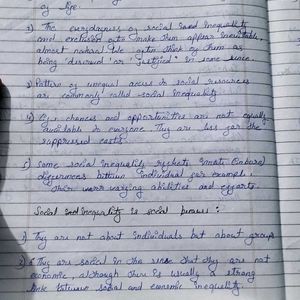 of life.
2) The everydayness of social and inequality
and exclusion often make them appear inevitable
almost natural. We often think of them as
being 'deserved' or 'justified' in some sense.
3) Pattern of unequal access to social resources
are commonly called social inequality
4) e.g. chances and opportunities are not equally
available to everyone They are less for the
suppressed caste.
5) Some social inequality reflects innate (inborn)
differences between individual for example.
their varying abilities and efforts.
Social and inequality is social because :
1) They are not about individuals but about group
2) They are social in the sense that they are not
economic, although there is usually a strong
link between social and economic inequality.